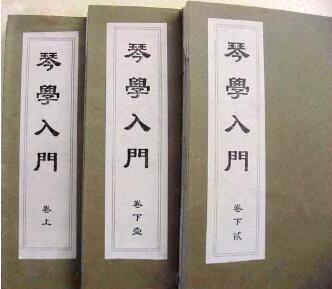 琴學入門
卷上
琴學入門
卷下壹
琴學入門
卷下貳